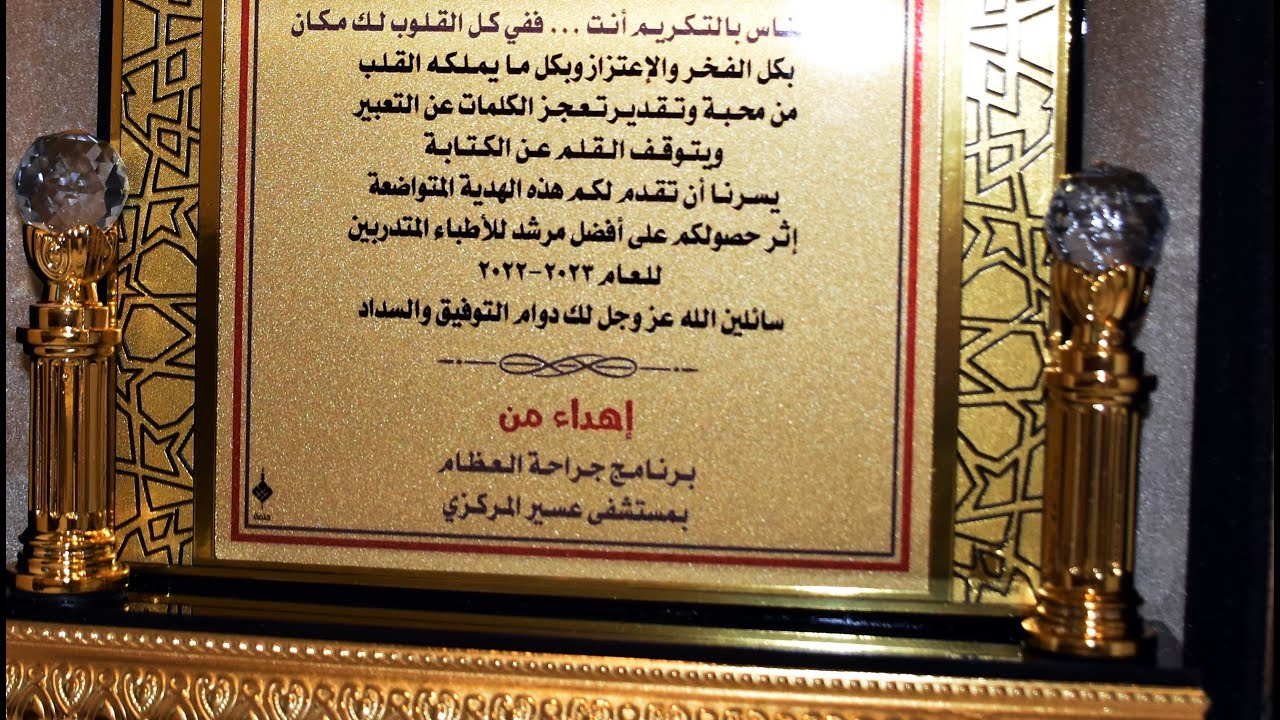 بالتكريم أنت ... ففي كل القلوب لك مكان
بكل الفخر والإعتزاز وبكل ما يملكه القلب
من محبة وتقدير تعجز الكلمات عن التعبير
ويتوقف القلم عن الكتابة
يسرنا أن تقدم لكم هذه الهدية المتواضعة
إثر حصولكم على أفضل مرشد للأطباء المتدربين
للعام ٢٠٢٣-٢٠٢٢
سائلين الله عز وجل لك دوام التوفيق والسداد
إهداء من
برنامج جراحة العظام
بمستشفى عسير المركزي